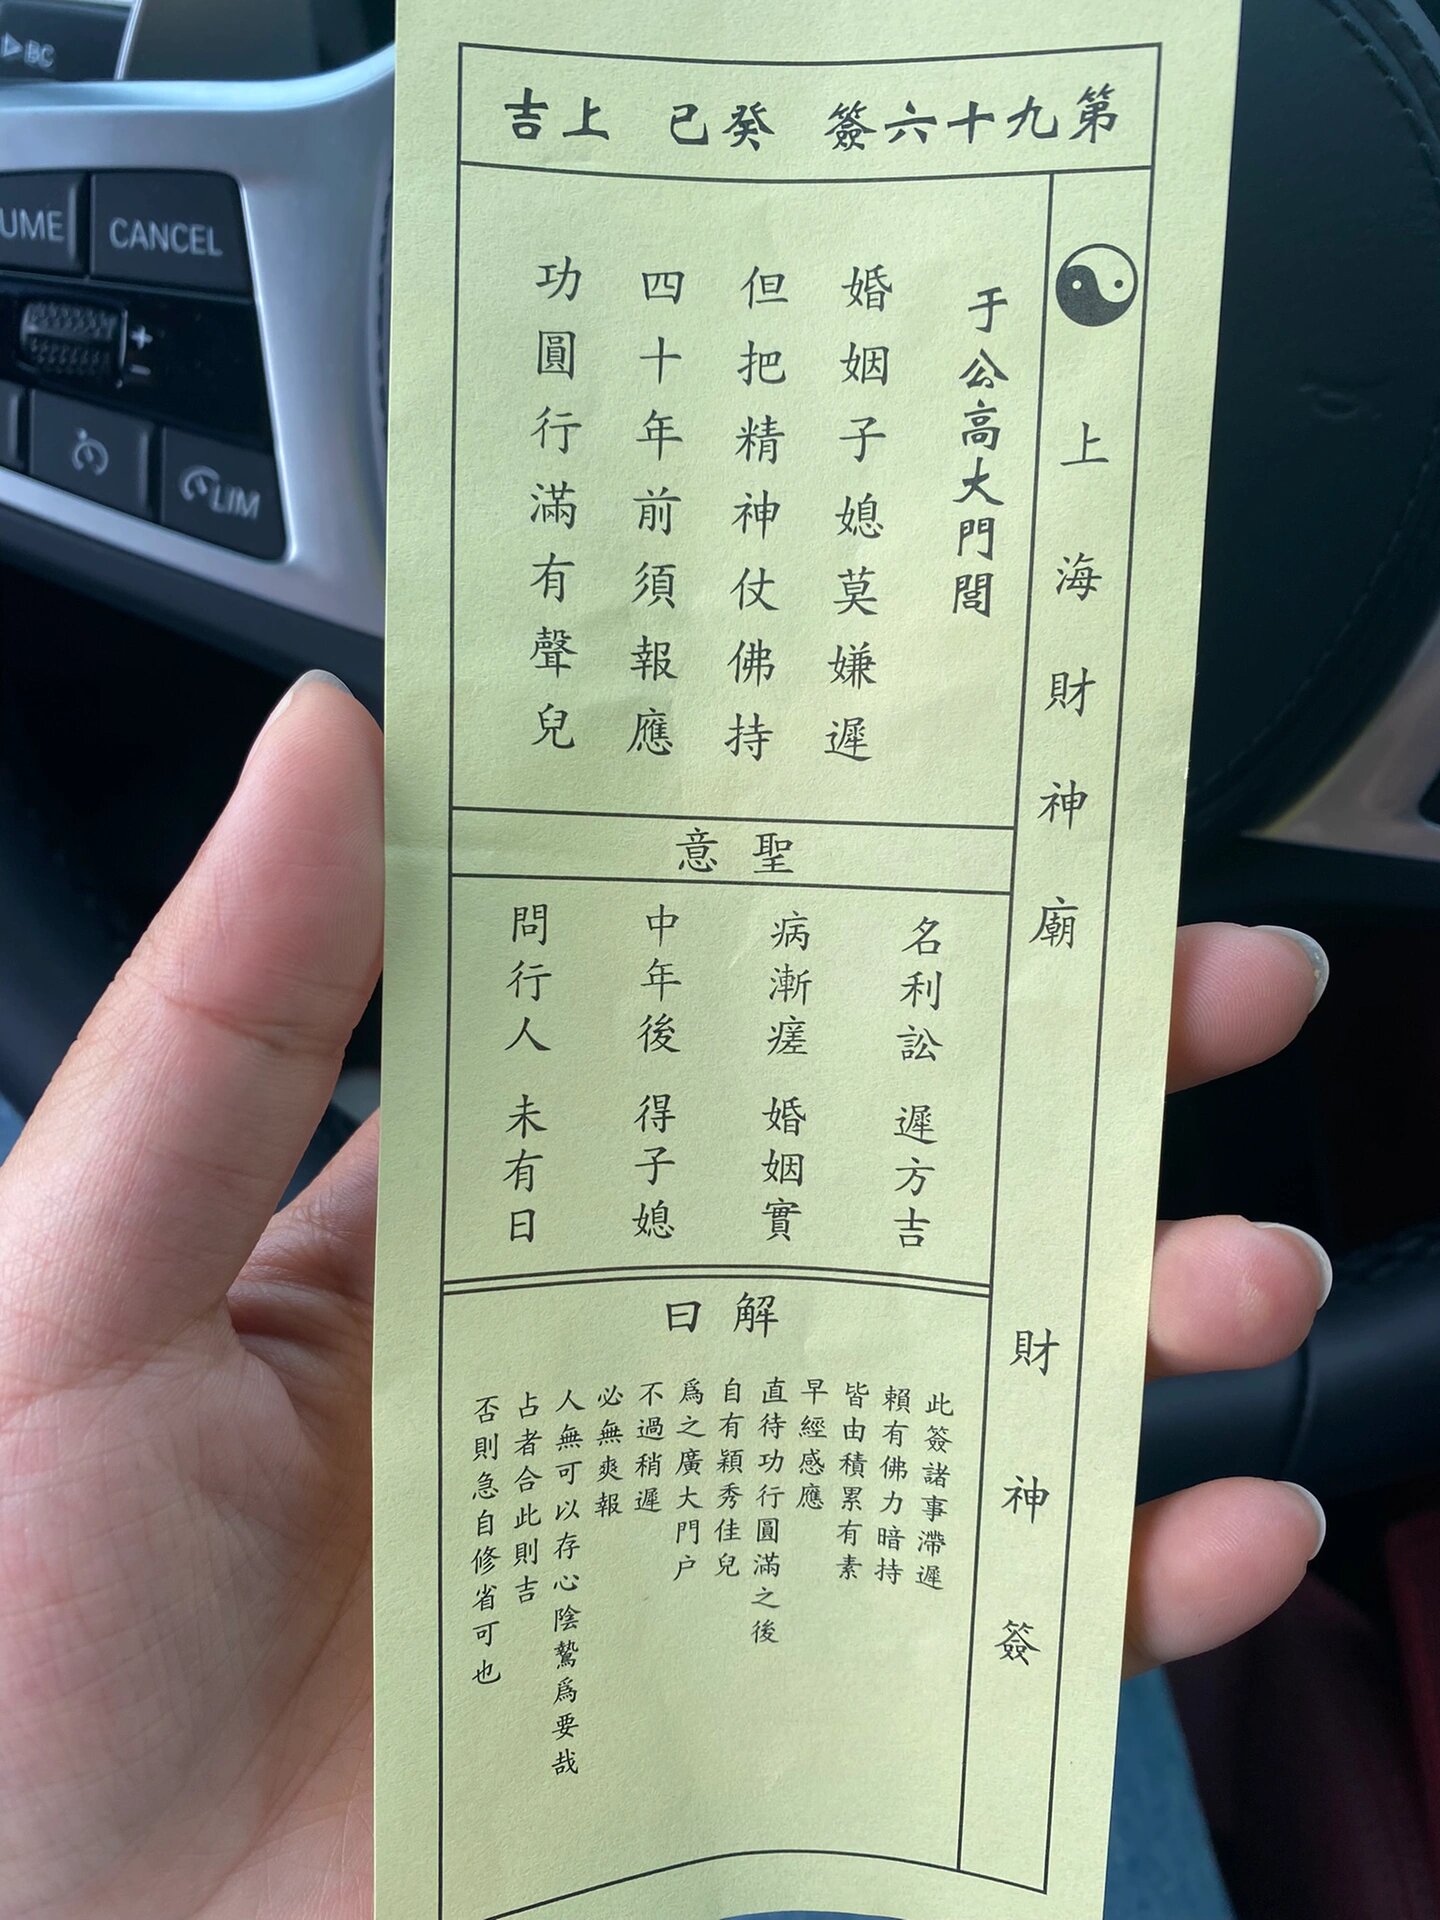 第九十六簽 癸巳 上吉
上海財神廟 財神簽
于公高大門閭
婚姻子媳莫嫌遲
但把精神仗佛持
四十年前須報應
功圓行滿有聲兒
聖意
名利訟 遲方吉
病漸瘥 婚姻實
中年後 得子媳
問行人 未有日
解曰
此簽諸事滯遲
賴有佛力暗持
皆由積累有素
早經感應
直待功行圓滿之後
自有穎秀佳兒
爲之廣大門户
不過稍遲
必無爽報
人無可以存心陰騭爲要哉
占者合此則吉
否則急自修省可也
BC
UME
CANCEL
+
−
LIM